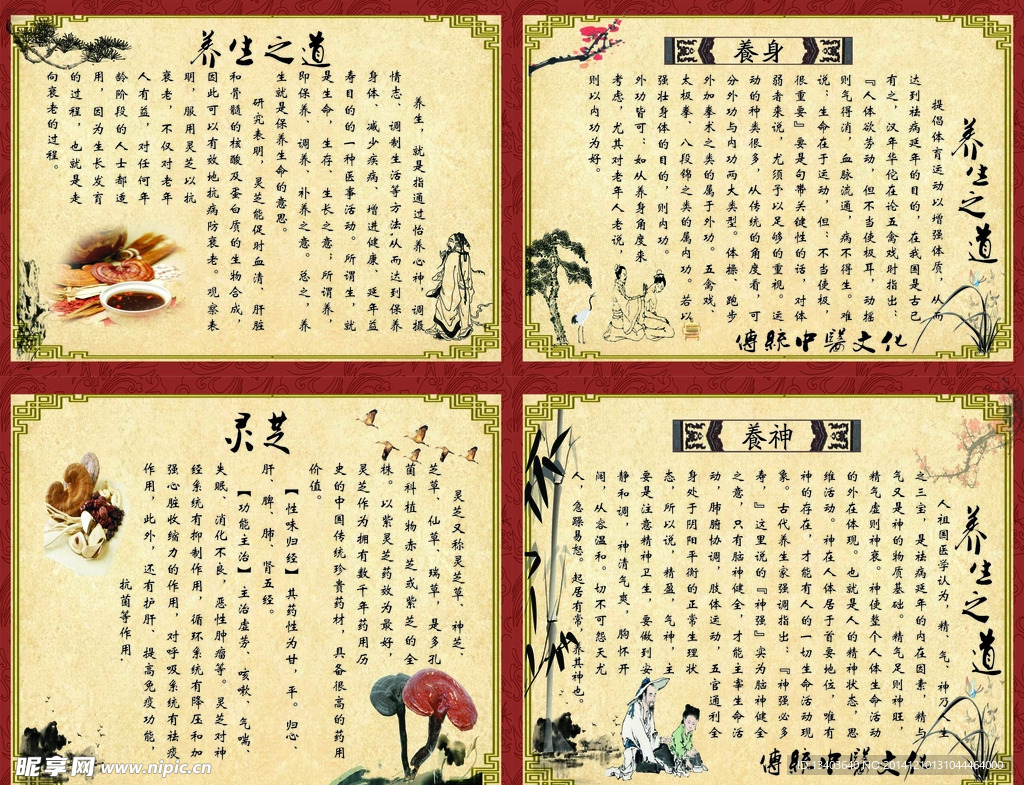 养生之道
养生，就是指通过怡养心神，调摄
情志、调制生活等方法从而达到保养
身体、减少疾病、增进健康、延年益
寿目的的一种医事活动。所谓生，就
是生命，生存、生长之意；所谓养，
即保养、调养、补养之意。总之，养
生就是保养生命的意思。
研究表明，灵芝能促时血清，肝脏
和骨髓的核酸及蛋白质的生物合成，
因此可以有效地抗病防衰老。观察表
明，服用灵芝以抗
衰老，不仅对老年
人有益，对任何年
龄阶段的人士都适
用，因为生长发育
的过程，也就是走
向衰老的过程。
養身
养生之道
提倡体育运动以增强体质，从而
达到祛病延年的目的，在我国是古已
有之，汉年华佗在论五禽戏时指出：
『人体欲劳动，但不当使极耳，动摇
则气得消，血脉流通，病不得生。难
说：生命在于运动，但：不当使极，
很重要』要是句带关键性的话，对体
弱者来说，尤须予以足够的重视。运
动的种类很多，从传统的角度看，可
分外功与内功两大类型。体操、跑步
外加拳术之类的属于外功。五禽戏、
太极拳、八段锦之类的属内功。若以
强壮身体的目的，则内功、
外功皆可：如从养身角度来
考虑，尤其对老年人老说，
则以内功为好。
傳統中醫文化
灵芝
灵芝又称灵芝草、神芝、
芝草、仙草、瑞草，是多孔
菌科植物赤芝或紫芝的全
株。以紫灵芝药效为最好，
灵芝作为拥有数千年药用历
史的中国传统珍贵药材，具备很高的药用
价值。
【性味归经】其药性为甘，平。归心、
肝、脾、肺、肾五经。
【功能主治】主治虚劳、咳嗽、气喘、
失眠、消化不良，恶性肿瘤等。灵芝对神
经系统有抑制作用，循环系统有降压和加
强心脏收缩力的作用，对呼吸系统有祛痰
作用，此外，还有护肝、提高免疫功能，
抗菌等作用.
養神
养生之道
人祖国医学认为，精、气、神乃人生
之三宝，是祛病延年的内在因素，精与
气又是神的物质基础。精气足则神旺，
精气虚则神衰。神使整个人体生命活动
的外在体现。也就是人的精神状态，思
维活动。神在人体居于首要地位，唯有
神的存在，才能有人的一切生命活动现
象。古代养生家强调指出：『神强必多
寿』这里说的『神强』实为脑神健全
之意，只有脑神健全，才能主宰生命活
动，肺腑协调，肢体运动，五官通利全
身处于阴阳平衡的正常生理状
态，所以说，精盈，气神，主
要是注意精神卫生，要做到安
静和调，神清气爽，胸怀开
阔，从容温和。切不可怨天尤
人，急躁易怒。起居有常，养其神也。
傳統中醫文化
昵享网 www.nipic.cn
ID:13403640 NO:20141210131044464000